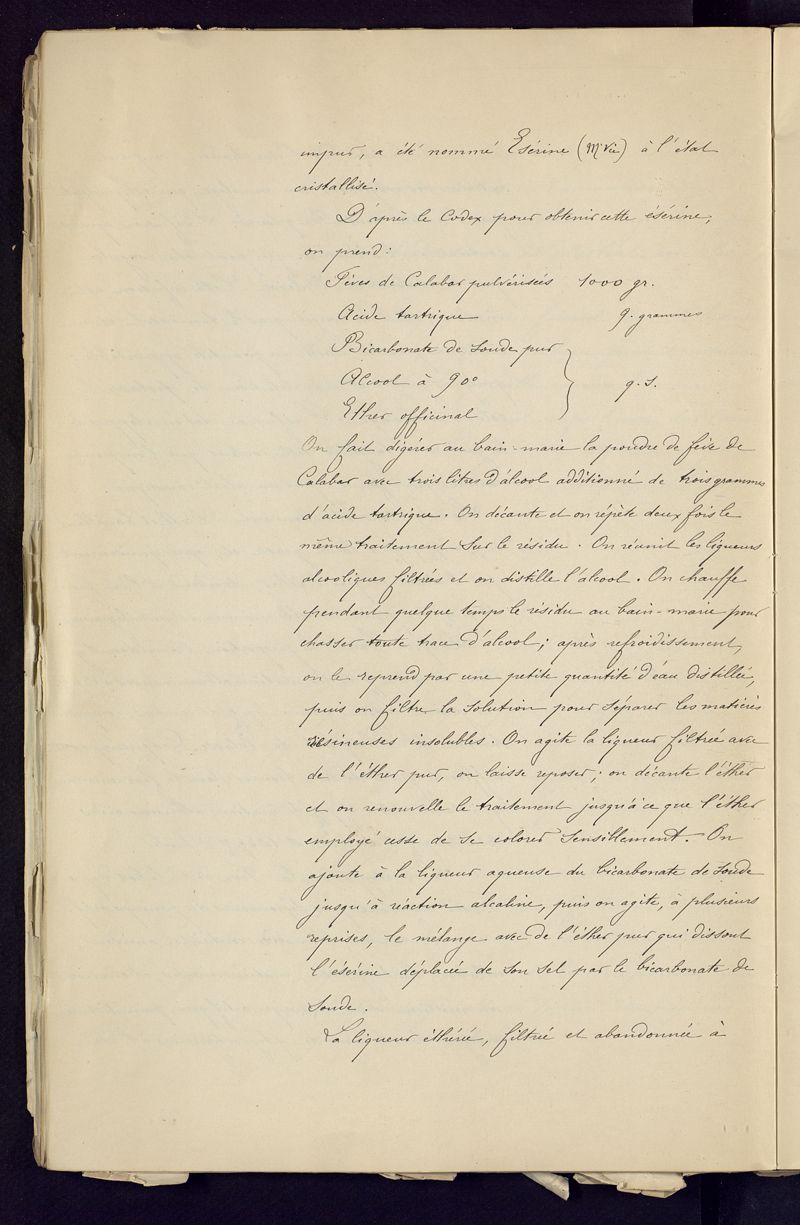 impur, a été nommé Esérine (Mr Vée) à l'état
cristallisé.
D'après le Codex pour obtenir cette ésérine,
on prend :
Fèves de Calabar pulvérisées 1000 gr.
Acide tartrique 9. grammes
Bicarbonate de soude pur
Alcool à 90° q.s.
Ether officinal
On fait digérer au bain-marie la poudre de fève de
Calabar avec trois litres d'alcool additionné de trois grammes
d'acide tartrique. On décante et on répète deux fois le
même traitement sur le résidu. On réunit les liqueurs
alcooliques filtrées et on distille l'alcool. On chauffe
pendant quelque temps le résidu au bain-marie pour
chasser toute trace d'alcool; après refroidissement,
on le reprend par une petite quantité d'eau distillée,
puis on filtre la solution pour séparer les matières
résineuses insolubles. On agite la liqueur filtrée avec
de l'éther pur, on laisse reposer; on décante l'éther
et on renouvelle le traitement jusqu'à ce que l'éther
employé cesse de se colorer sensiblement. On
ajoute à la liqueur aqueuse du bicarbonate de soude
jusqu'à réaction alcaline, puis on agite, à plusieurs
reprises, le mélange avec de l'éther pur qui dissout
l'ésérine déplacée de son sel par le bicarbonate de
soude.
La liqueur éthérée, filtrée et abandonnée à